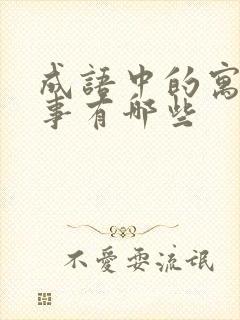 成語中的寓
事有哪些
不愛耍流氓